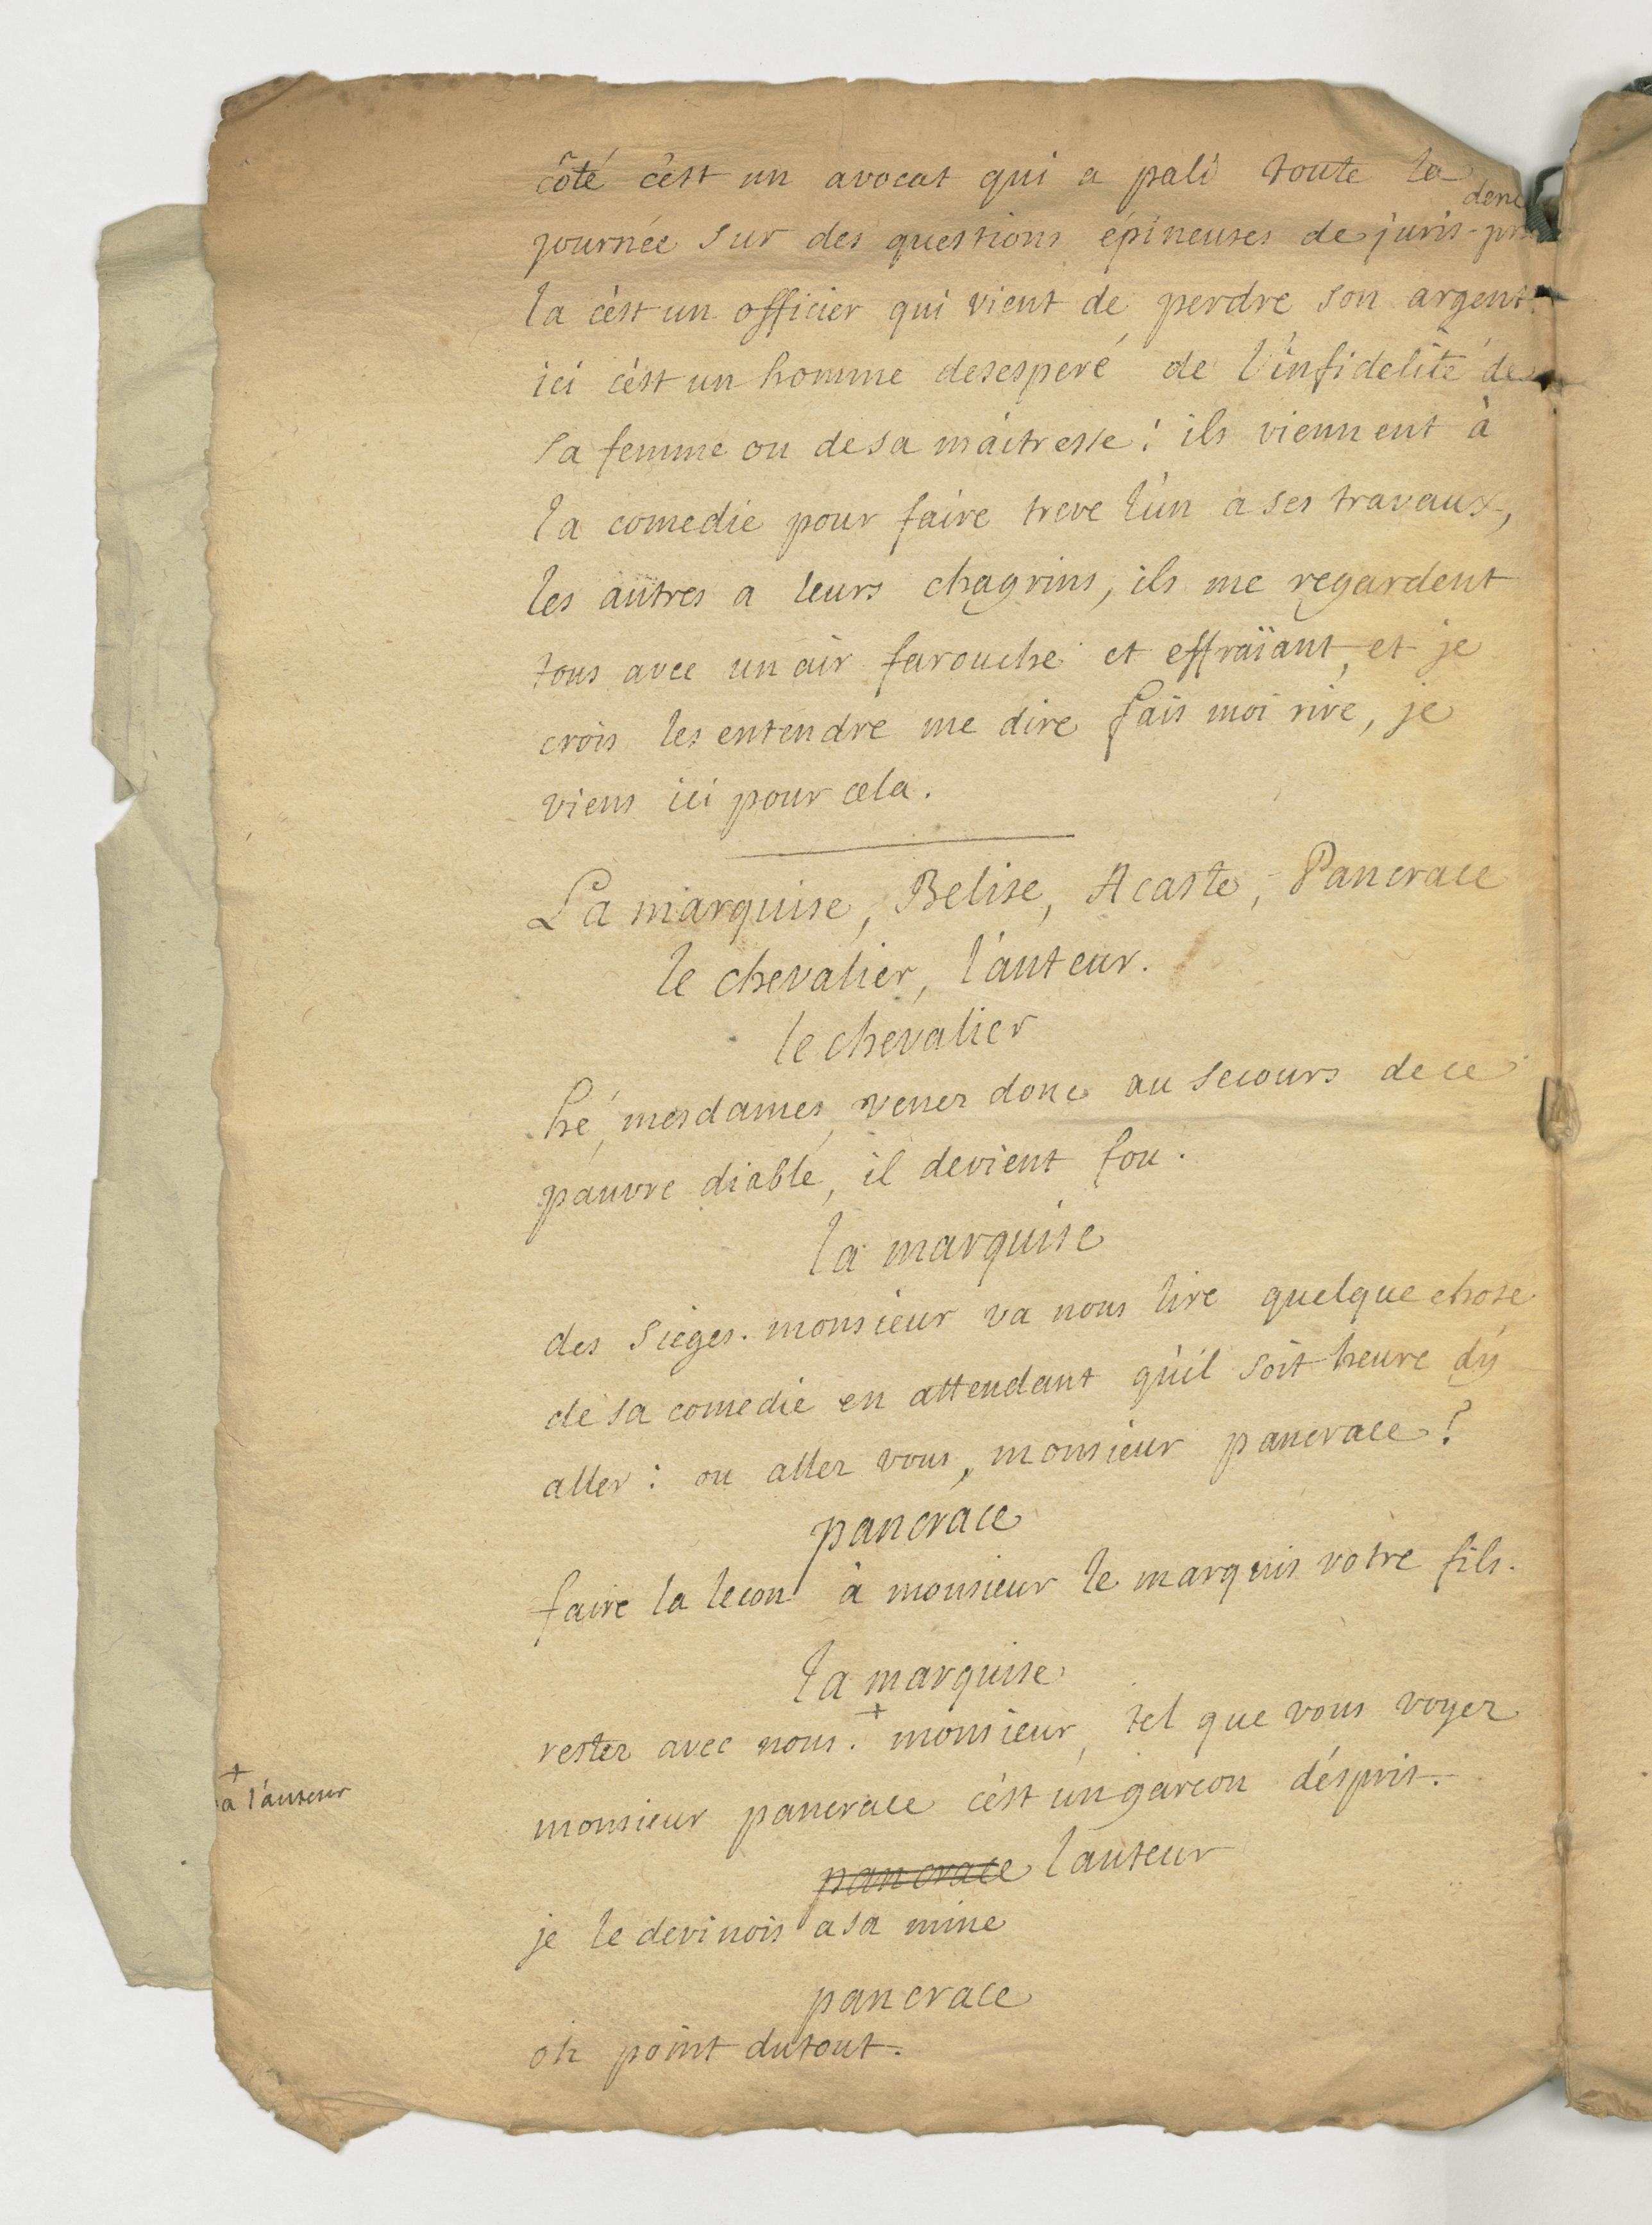 côté c'est un avocat qui a pali toute la
journée sur des questions épineuses de juris-pru
denc
la c'est un officier qui vient de perdre son argent.
ici c'est un homme desesperé de l'infidelité de
sa femme ou de sa maitresse : ils viennent à
la comedie pour faire treve l'un a ses travaux,
les autres a leurs chagrins, ils me regardent
tous avec un air farouche et effraïant, et je
crois les entendre me dire fais moi rire, je
viens ici pour cela.
La marquise, Belise, Acaste, Pancrace
le chevalier, l'auteur.
le chevalier
hé, mesdames, venez donc au secours de ce
pauvre diable, il devient fou.
la marquise
des sieges. monsieur va nous lire quelque chose
de sa comedie en attendant qu'il soit heure d'y
aller : ou allez vous, monsieur pancrace ?
pancrace
faire la lecon à monsieur le marquis votre fils.
la marquise
restez avec nous. + monsieur, tel que vous voyez
+
à l'auteur
monsieur pancrace c'est un garcon d'esprit.
pancrace l'auteur
je le devinois a sa mine
pancrace
oh point du tout.